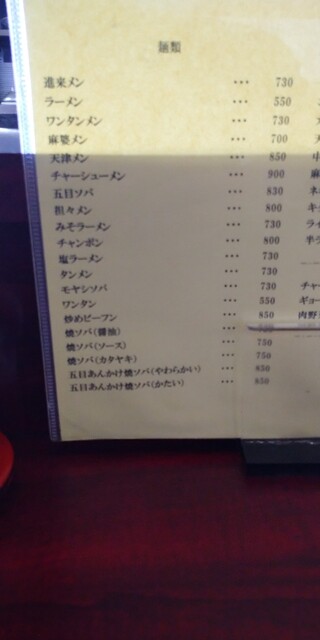 麺類
進来メン … 730
ラーメン … 550
ワンタンメン … 730
麻婆メン … 700
天津メン … 850
チャーシューメン … 900
五目ソバ … 830
担々メン … 800
みそラーメン … 730
チャンポン … 800
塩ラーメン … 730
タンメン … 730
モヤシソバ … 730
ワンタン … 550
炒めビーフン … 850
焼ソバ(醤油) …
焼ソバ(ソース) … 750
焼ソバ(カタヤキ) … 750
五目あんかけ焼ソバ(やわらかい) … 850
五目あんかけ焼ソバ(かたい) … 850
麻
ネ
キ
ライ
半ラ
チャー
ギョー
肉野